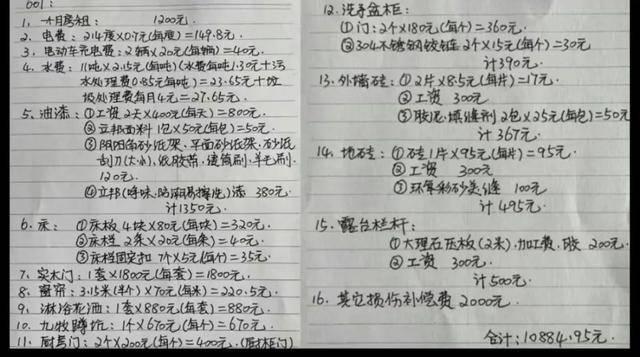 601:
1. 一个月房租: 1200元.
2. 电费: 214度×0.7元(每度)=149.8元.
3. 电动车充电费: 2辆×20元(每辆)=40元.
4. 水费: 11吨×2.15元(每吨)(水费每吨1.30元+污
水处理费0.85元每吨)=23.65元+垃
圾处理费每月4元=27.65元.
5. 油漆: ①工资 2天×400元(每天)=800元.
②立邦面料 1包×50元(每包)=50元.
③阴阳角砂纸架、平面砂纸架、砂纸
刮刀(大小)、纸胶带、滚筒刷、羊毛刷.
120元.
④立邦(呼味.防潮易擦洗)漆 380元.
计1350元.
6. 床: ①床板 4块×80元(每块)=320元.
②床档 2条×20元(每条)=40元.
③床档固定扣 7个×5元(每个)=35元.
7. 实木门: 1套×1800元(每套)=1800元.
8. 窗帘: 3.15米(半个)×70元(每米)=220.5元.
9. 淋浴花洒: 1套×880元(每套)=880元.
10. 九牧蹲坑: 1个×670元(每个)=670元.
11. 厨房门: 2个×200元(每个)=400元. (厨柜门)
12. 洗手盆柜:
①门: 2个×180元(每个)=360元.
②304不锈钢铰链 2个×15元(每个)=30元
计390元.
13. 外墙砖: ①2片×8.5元(每片)=17元.
②工资 300元.
③胶泥、填缝剂 2包×25元(每包)=50元
计367元.
14. 地砖: ①砖1片×95元(每片)=95元.
②工资 300元
③环氧彩砂美缝 100元
计495元.
15. 露台栏杆:
①大理石压板(2米).加工费.胶 200元.
②工资 300元.
计500元.
16. 其它损伤补偿费 2000元.
合计: 10884.95元.